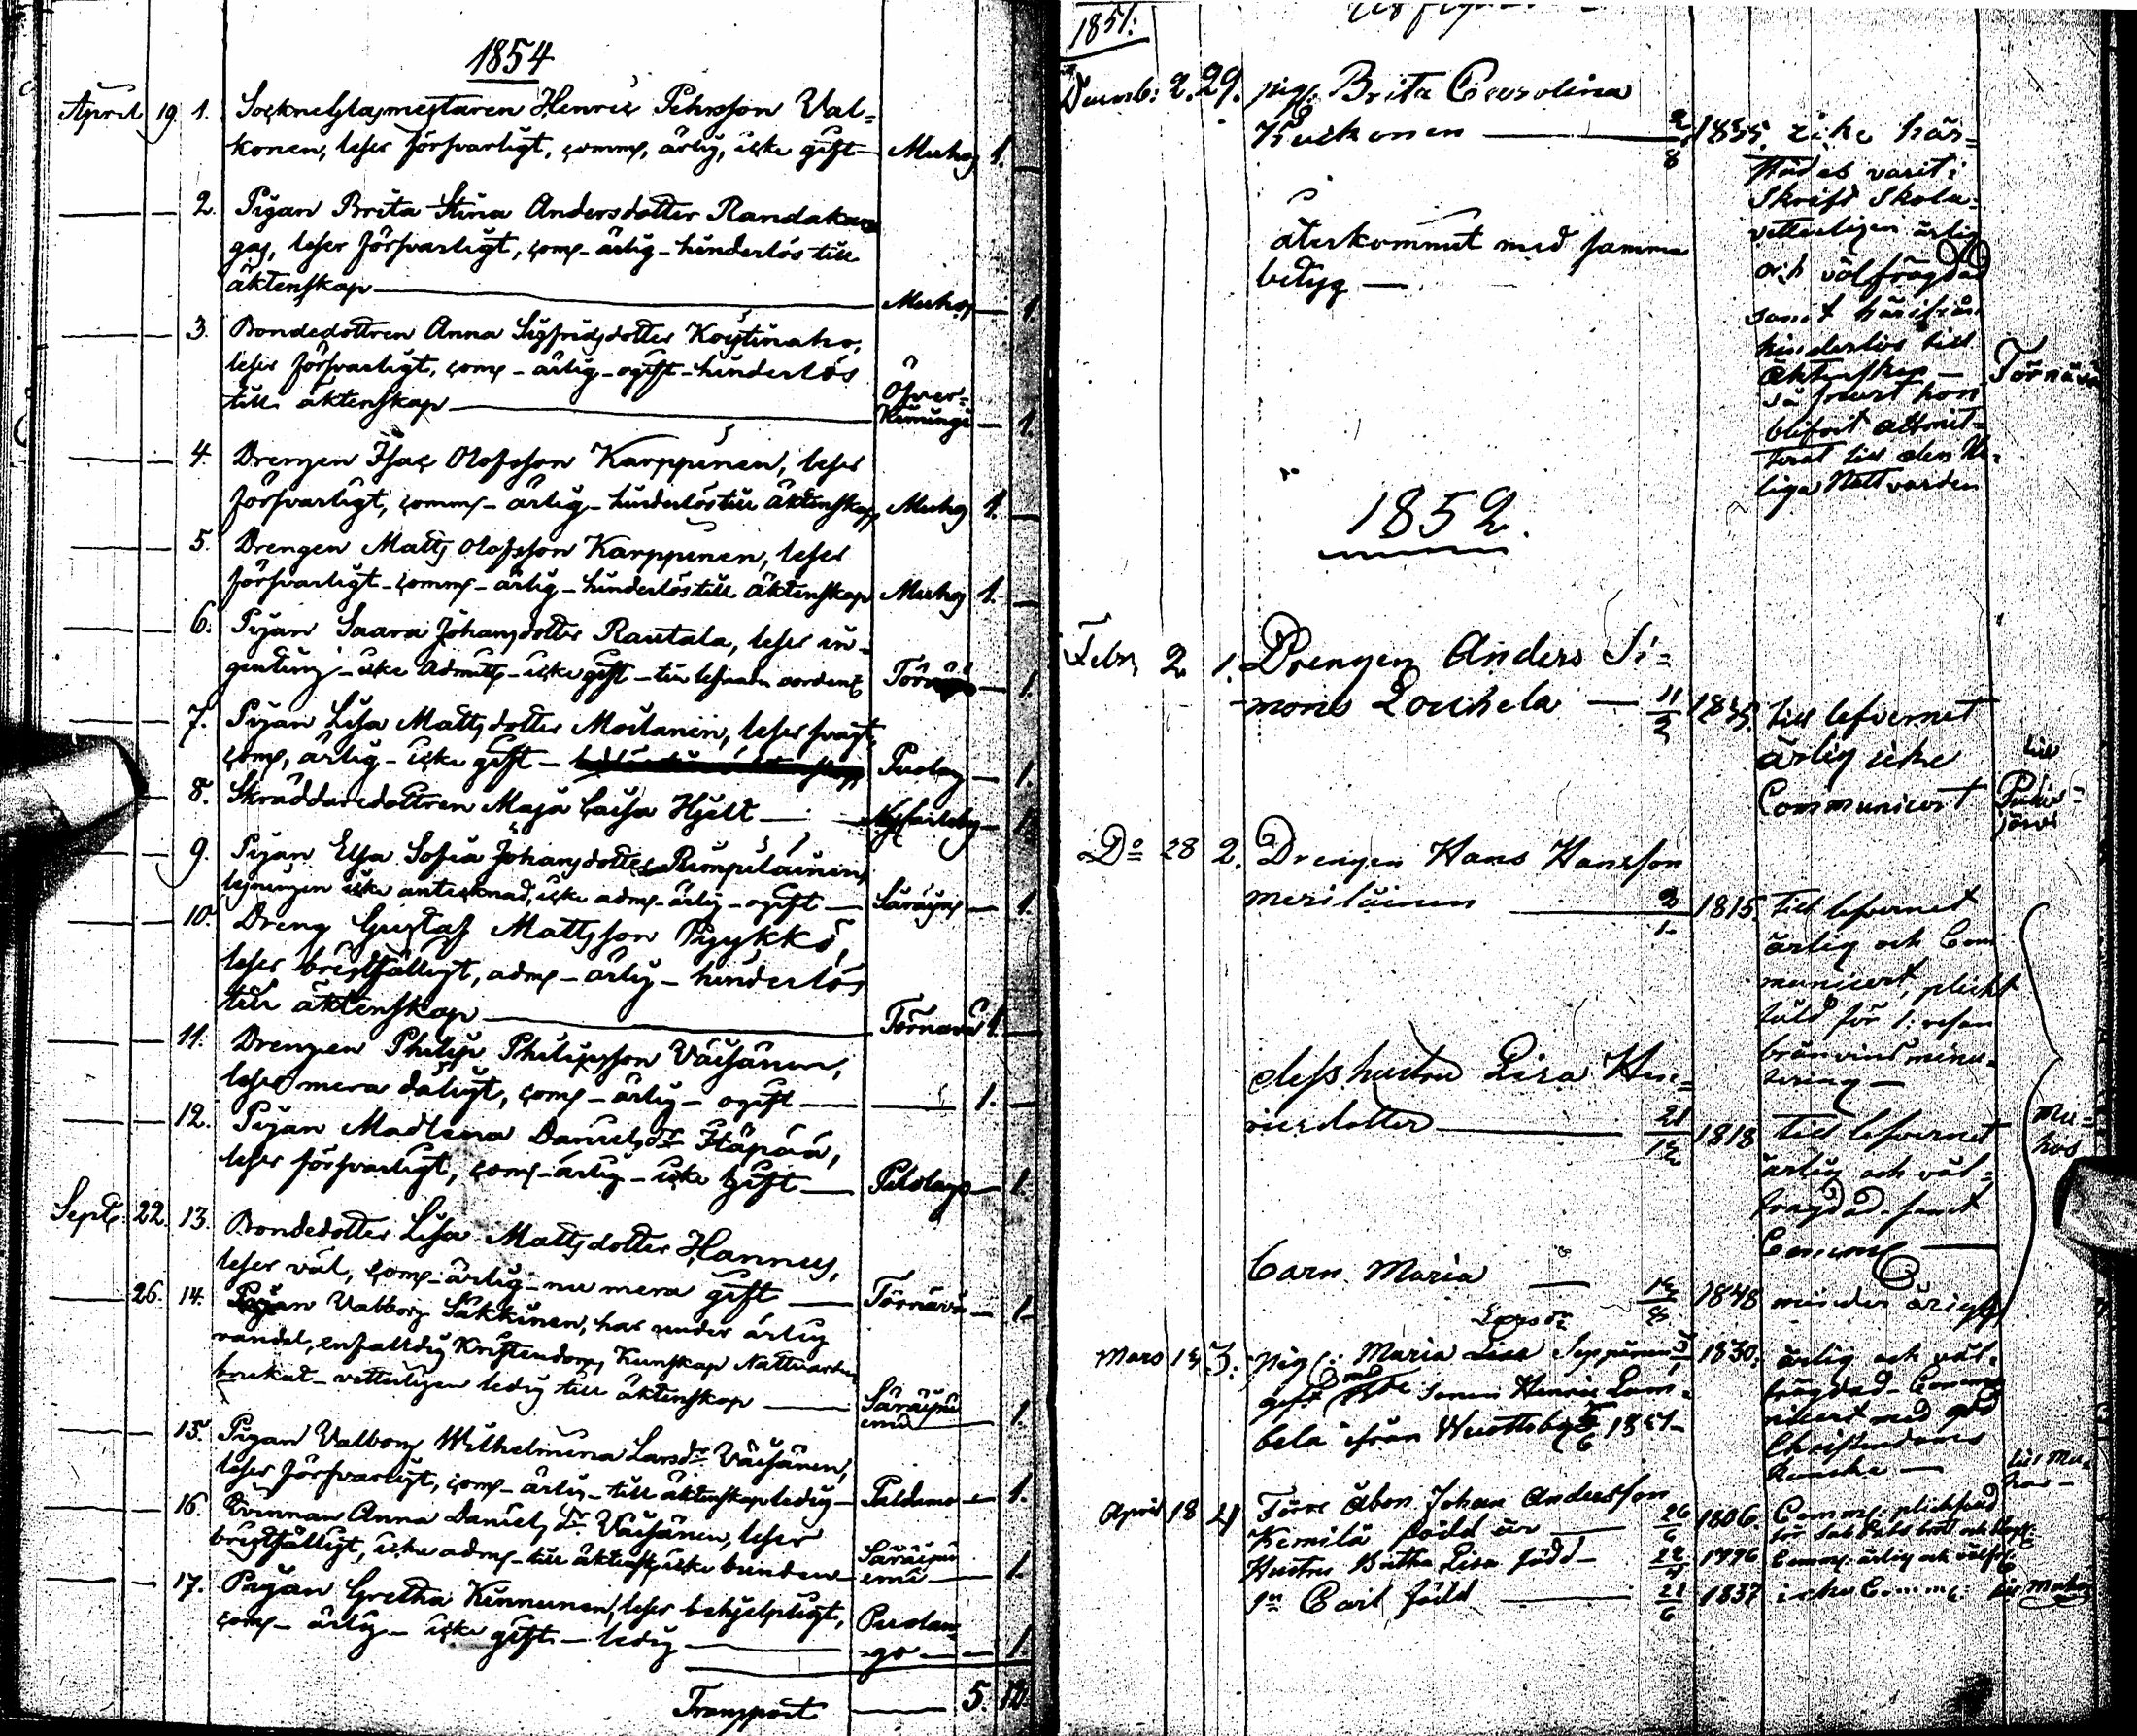 1854
April 19 1. Socknesslagmestaren Henric Pehrsson Val-
konen, leser försvarligt, comms, ärlig, icke gift — Muhos 1.
2. Pigan Brita Stina Andersdotter Randakan
gas, leser försvarligt, coms - ärlig - hinderlös till
äktenskap — Muhos — 1.
3. Bondedottren Anna Sigfridsdotter Koistinaho,
leser försvarligt, coms - ärlig - ogift - hinderlös
till äktenskap — Öfver-
Kiminge — 1.
4. Drengen Isac Olofsson Karppinen, leser
försvarligt, comms - ärlig - hinderlös till äktenskap Muhos 1.
5. Drengen Matts Olofsson Karppinen, leser
försvarligt - comms - ärlig - hinderlös till äktenskap Muhos 1.
6. Pigan Saara Johansdotter Rautala, leser in-
genting - icke Admitts - icke gift - till lefnaden 1.
7. Pigan Lisa Mattsdotter Moilanen, leser svagt,
coms, ärlig - icke gift — Pudas — 1.
8. Skräddaredottren Maja Caisa Hjelt — Nykarleby — 1.
9. Pigan Elsa Sofia Johansdotter Rimpiläinen
icke antecknad, icke adms - ärlig - ogift — Säräisn — 1.
10. Dreng Gustaf Mattsson Pyykkö,
leser bristfälligt, adms - ärlig - hinderlös
till äktenskap — Törnävä 1.
11. Drengen Philip Philipsson Väisänen,
leser mera dåligt, coms - ärlig - ogift — 1.
12. Pigan Madlena Danielsdr Itäpää,
leser försvarligt, coms - ärlig - icke gift — 1.
Sept. 22. 13. Bondedotter Lisa Mattsdotter Hannus,
leser väl, coms - ärlig - nu mera gift — Törnävä — 1.
26. 14. Pigan Valborg Säkkinen, har under ärlig
vandel, enfalldig Kristendoms Kunskap Nattvarden
brukat - vetterligen ledig till äktenskap — Säräisni
emi 1.
15. Pigan Valborg Wilhelmina Larsdr Väisänen,
leser försvarligt, coms - ärlig - till äktenskap ledig — Paldamo — 1.
16. Qvinnan Anna Danielsdr Väisänen, leser
bristfälligt, icke adms - till äktensk icke bunden — Säräisni
emi — 1.
17. Pigan Gretha Kinnunen, leser behjelpligt,
coms - ärlig - icke gift - ledig — Pudas-
1.
Transport — 5. 12.
1851.
Decemb: 2. 29. pig. Brita Carolina
Kukkonen — 2/8 1835. icke här-
städes varit i
Skrift Skola
vetterligen ärlig
och välfrägdad
samt härifrån
hinderlös till
äktenskap — Törnävä
så snart hon
blifvit admit-
terat till den He-
liga Nattvarden
återkommit med samma
betyg —
1852.
Febr. 2 1. Drengen Anders Si-
mons Louhela — 1835. till lefvernet
ärlig icke
Communicert
till
Pudas-
järvi
Do 28 2. Drengen Hans Hansson
Meriläinen — 1815. till lefvernet
ärlig och Com
municert, plickt
fäld för 1. resan
bränvins minu-
tering —
dess hustru Lisa Hen-
ricsdotter — 21/12 1818 till lefvernet
ärlig och väl-
frägdad samt
Comms —
Mu-
hos
barn Maria — 1848 minder årigt
Larsdr
Mars 14 3. pig: Maria Lisa Seppänen 1830. ärlig och väl-
frägdad - Commu
nicert med god
Christendoms
Kunskap —
till Mu-
hos —
gift med sonen Henric Lam-
bela ifrån 1851 -
April 18 4 Förre Åbon Johan Andersson
Kemilä född är — 26/6 1806. Comms: plicktfäld
Hustru Britha Lisa född — 1796 Comms. ärlig och välfr.
sn Carl född — 21/6 1837 icke Comms: till Muhos